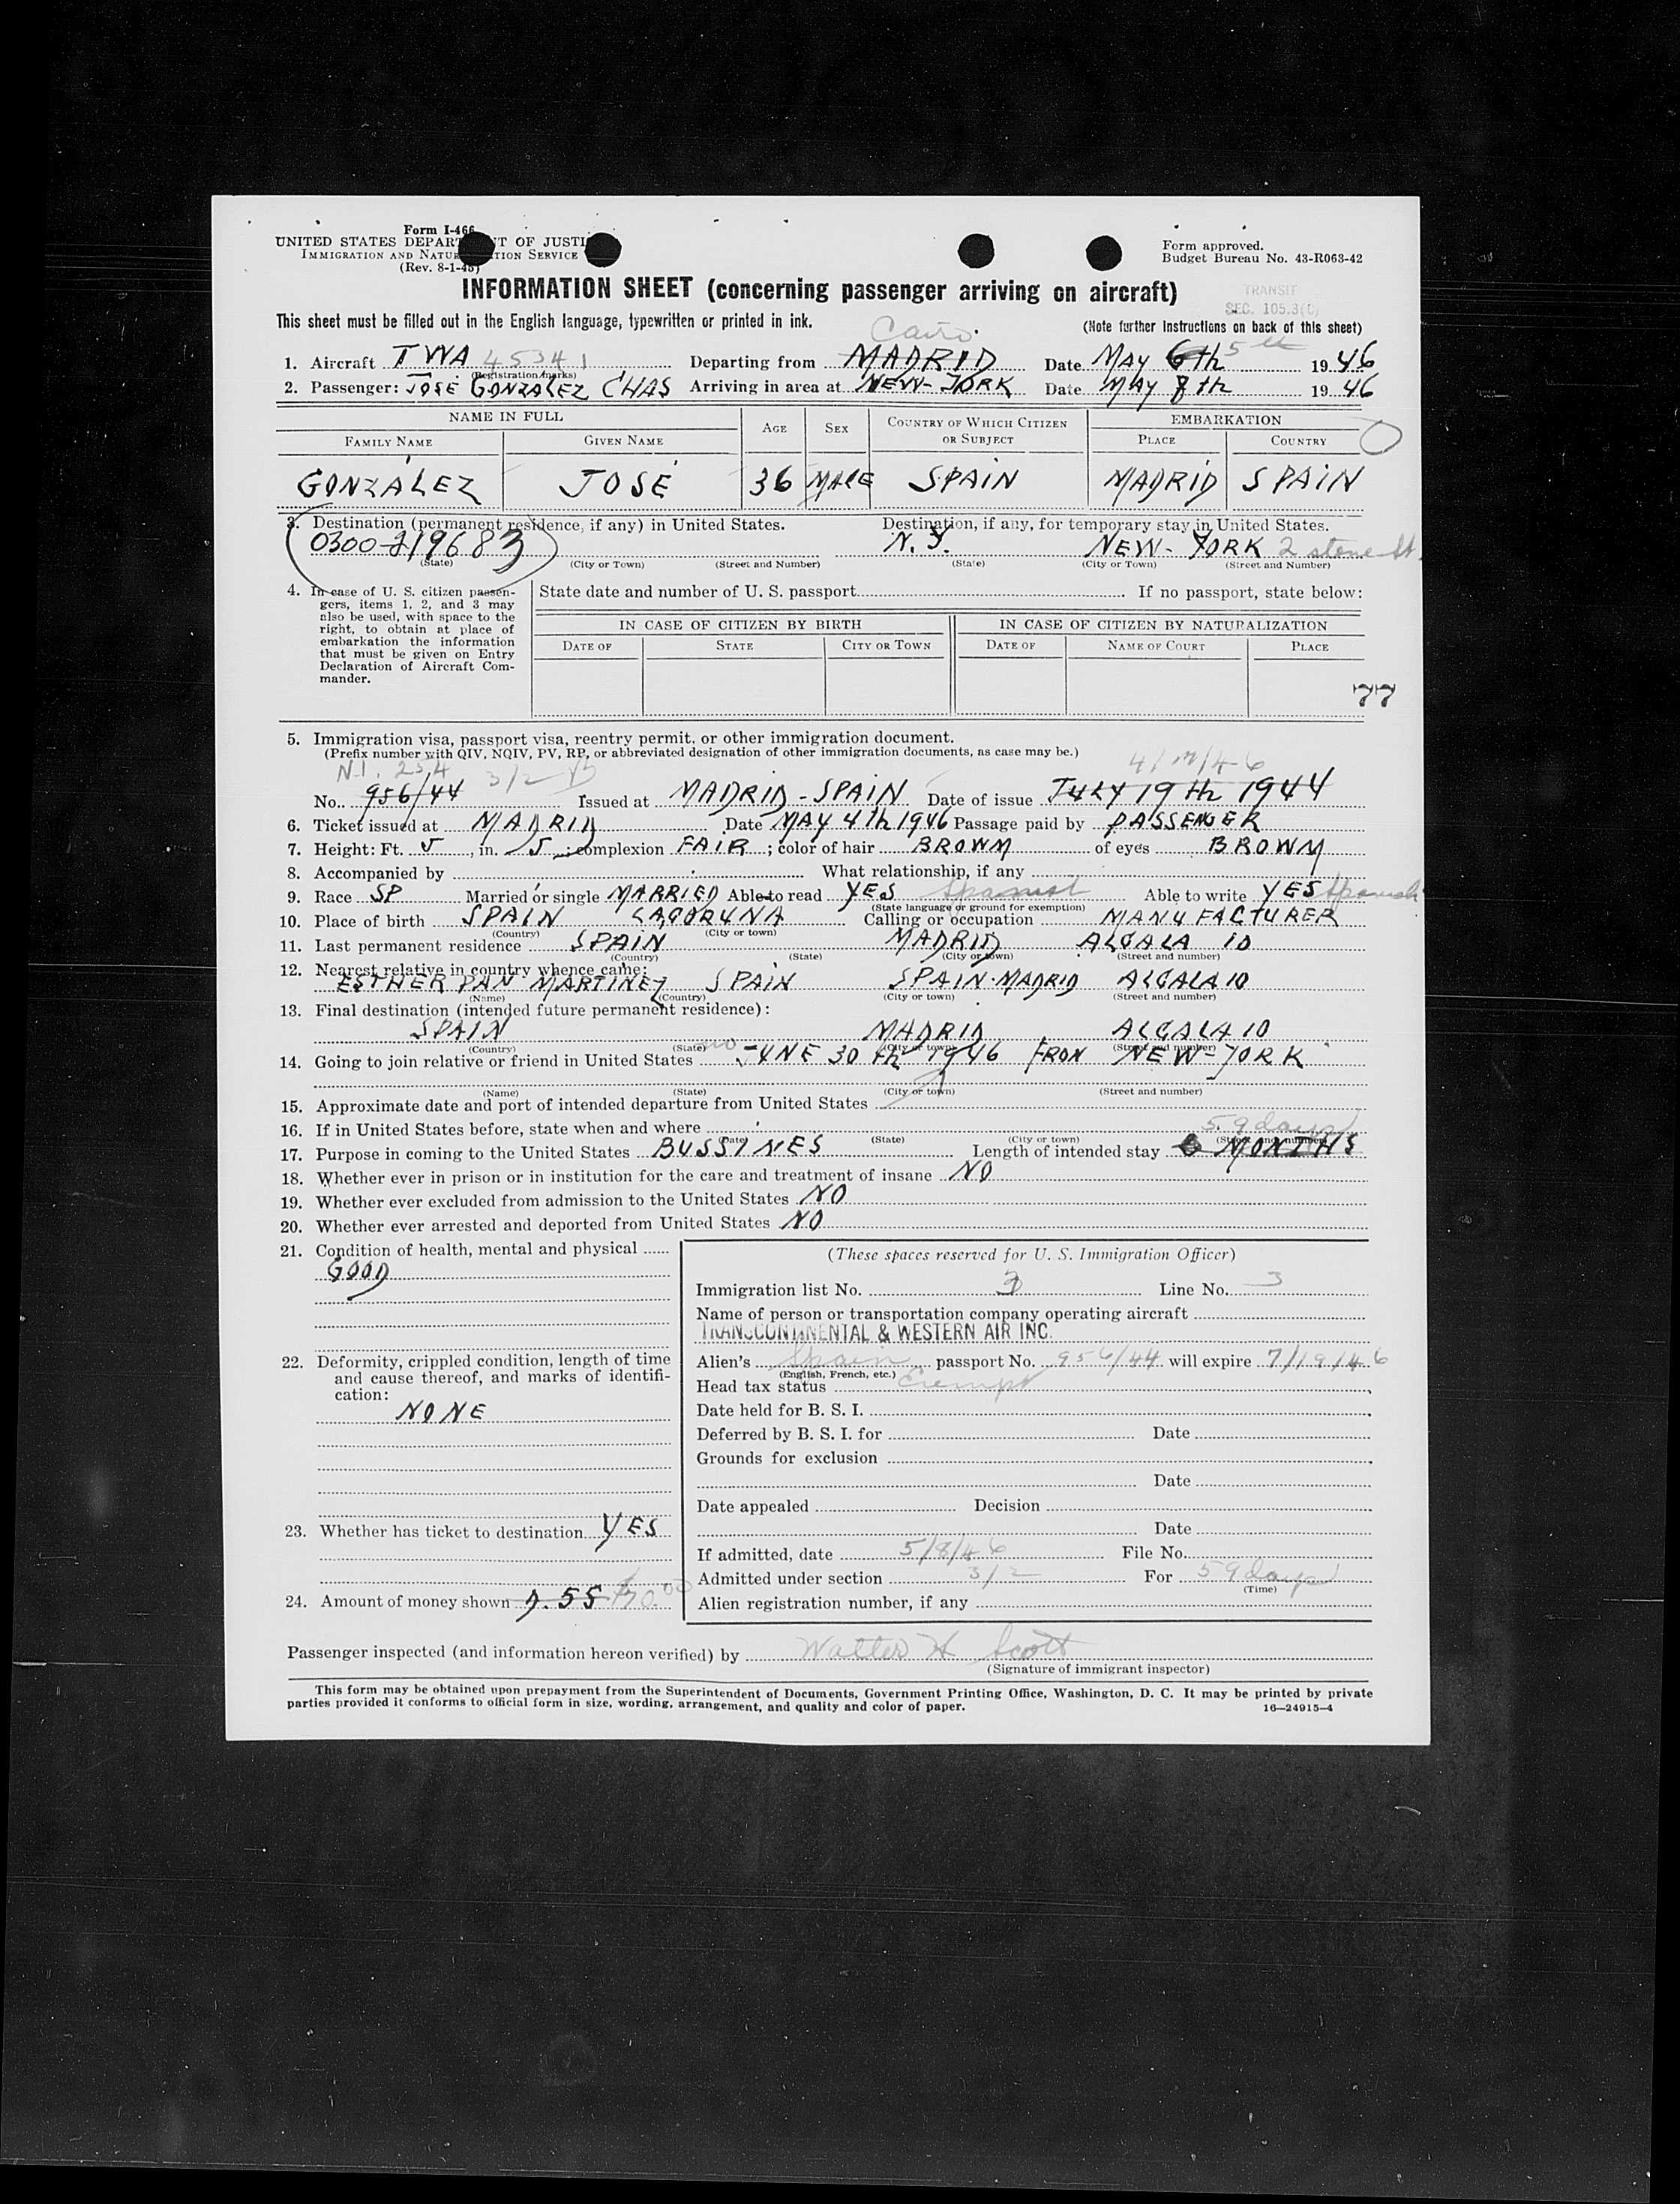 Form I-466
UNITED STATES DEPARTMENT OF JUSTICE
IMMIGRATION AND NATURALIZATION SERVICE
(Rev. 8-1-45)
Form approved.
Budget Bureau No. 43-R063-42
INFORMATION SHEET (concerning passenger arriving on aircraft)
TRANSIT
SEC. 105.3(C)
This sheet must be filled out in the English language, typewritten or printed in ink.
(Note further instructions on back of this sheet)
Cairo
1. Aircraft TWA 45341 Departing from MADRID Date MAY 6th 5th 1946
(Registration marks)
2. Passenger: JOSE GONZALEZ CHAS Arriving in area at NEW-YORK Date MAY 8th 1946
NAME IN FULL AGE SEX COUNTRY OF WHICH CITIZEN OR SUBJECT EMBARKATION
FAMILY NAME GIVEN NAME PLACE COUNTRY
GONZÁLEZ JOSÉ 36 MALE SPAIN MADRID SPAIN
3. Destination (permanent residence, if any) in United States. Destination, if any, for temporary stay in United States.
0300-219683 N.Y. NEW-YORK 2 stone St.
(State) (City or Town) (Street and Number) (State) (City or Town) (Street and Number)
4. In case of U. S. citizen passengers, items 1, 2, and 3 may also be used, with space to the right, to obtain at place of embarkation the information that must be given on Entry Declaration of Aircraft Commander.
State date and number of U. S. passport If no passport, state below:
IN CASE OF CITIZEN BY BIRTH IN CASE OF CITIZEN BY NATURALIZATION
DATE OF STATE CITY OR TOWN DATE OF NAME OF COURT PLACE
77
5. Immigration visa, passport visa, reentry permit, or other immigration document.
(Prefix number with QIV, NQIV, PV, RP, or abbreviated designation of other immigration documents, as case may be.)
N.I. 254 3/2 4/17/46
No. 956/44 Issued at MADRID-SPAIN Date of issue JULY 19th 1944
6. Ticket issued at MADRID Date MAY 4th 1946 Passage paid by PASSENGER
7. Height: Ft. 5, in. 5; complexion FAIR; color of hair BROWN of eyes BROWN
8. Accompanied by What relationship, if any
9. Race SP Married or single MARRIED Able to read YES Spanish Able to write YES Spanish
(State language or ground for exemption)
10. Place of birth SPAIN LACORUNA Calling or occupation MANUFACTURER
(Country) (City or town)
11. Last permanent residence SPAIN MADRID ALCALA 10
(Country) (State) (City or town) (Street and number)
12. Nearest relative in country whence came:
ESTHER PAN MARTINEZ SPAIN SPAIN-MADRID ALCALA 10
(Name) (Country) (City or town) (Street and number)
13. Final destination (intended future permanent residence):
SPAIN MADRID ALCALA 10
(Country) (State) (City or town) (Street and number)
14. Going to join relative or friend in United States no JUNE 30th 1946 FRON NEW-YORK
(Name) (State) (City or town) (Street and number)
15. Approximate date and port of intended departure from United States
16. If in United States before, state when and where
(Date) (State) (City or town) (Street and number)
59 days
17. Purpose in coming to the United States BUSSINES Length of intended stay 6 MONTHS
18. Whether ever in prison or in institution for the care and treatment of insane NO
19. Whether ever excluded from admission to the United States NO
20. Whether ever arrested and deported from United States NO
21. Condition of health, mental and physical
GOOD
22. Deformity, crippled condition, length of time and cause thereof, and marks of identification:
NONE
23. Whether has ticket to destination YES
24. Amount of money shown
(These spaces reserved for U. S. Immigration Officer)
Immigration list No. 3 Line No. 3
Name of person or transportation company operating aircraft
TRANSCONTINENTAL & WESTERN AIR INC.
Alien's Spain passport No. 956/44 will expire 7/19/46
(English, French, etc.)
Head tax status Exempt
Date held for B. S. I.
Deferred by B. S. I. for Date
Grounds for exclusion
Date
Date appealed Decision
Date
If admitted, date 5/8/46 File No.
Admitted under section 3/2 For 59 days
(Time)
Alien registration number, if any
Passenger inspected (and information hereon verified) by Walter H Scott
(Signature of immigrant inspector)
This form may be obtained upon prepayment from the Superintendent of Documents, Government Printing Office, Washington, D. C. It may be printed by private
parties provided it conforms to official form in size, wording, arrangement, and quality and color of paper.
16—24915-4